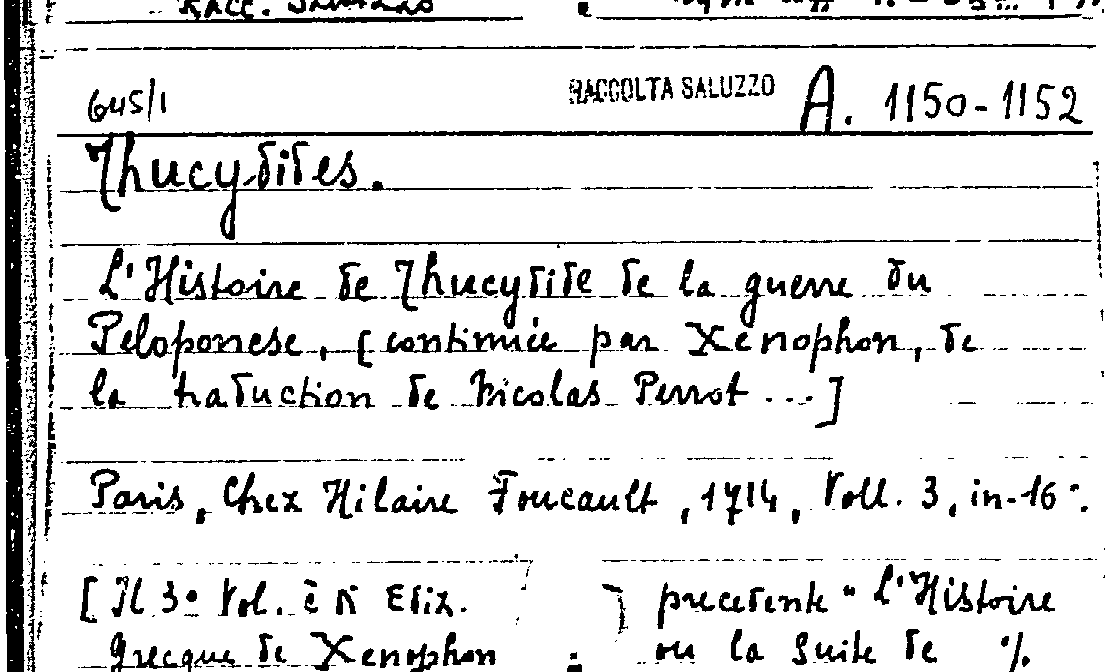 RACC. SALUZZO
645/1 RACCOLTA SALUZZO A. 1150-1152
Thucydides.
L'Histoire de Thucydide de la guerre du
Peloponese, [continuée par Xenophon, de
la traduction de Nicolas Perrot ...]
Paris, Chez Hilaire Foucault, 1714, Voll. 3, in-16°.
[Il 3° Vol. è di Ediz. precedente "L'Histoire
grecque de Xenophon ou la Suite de %